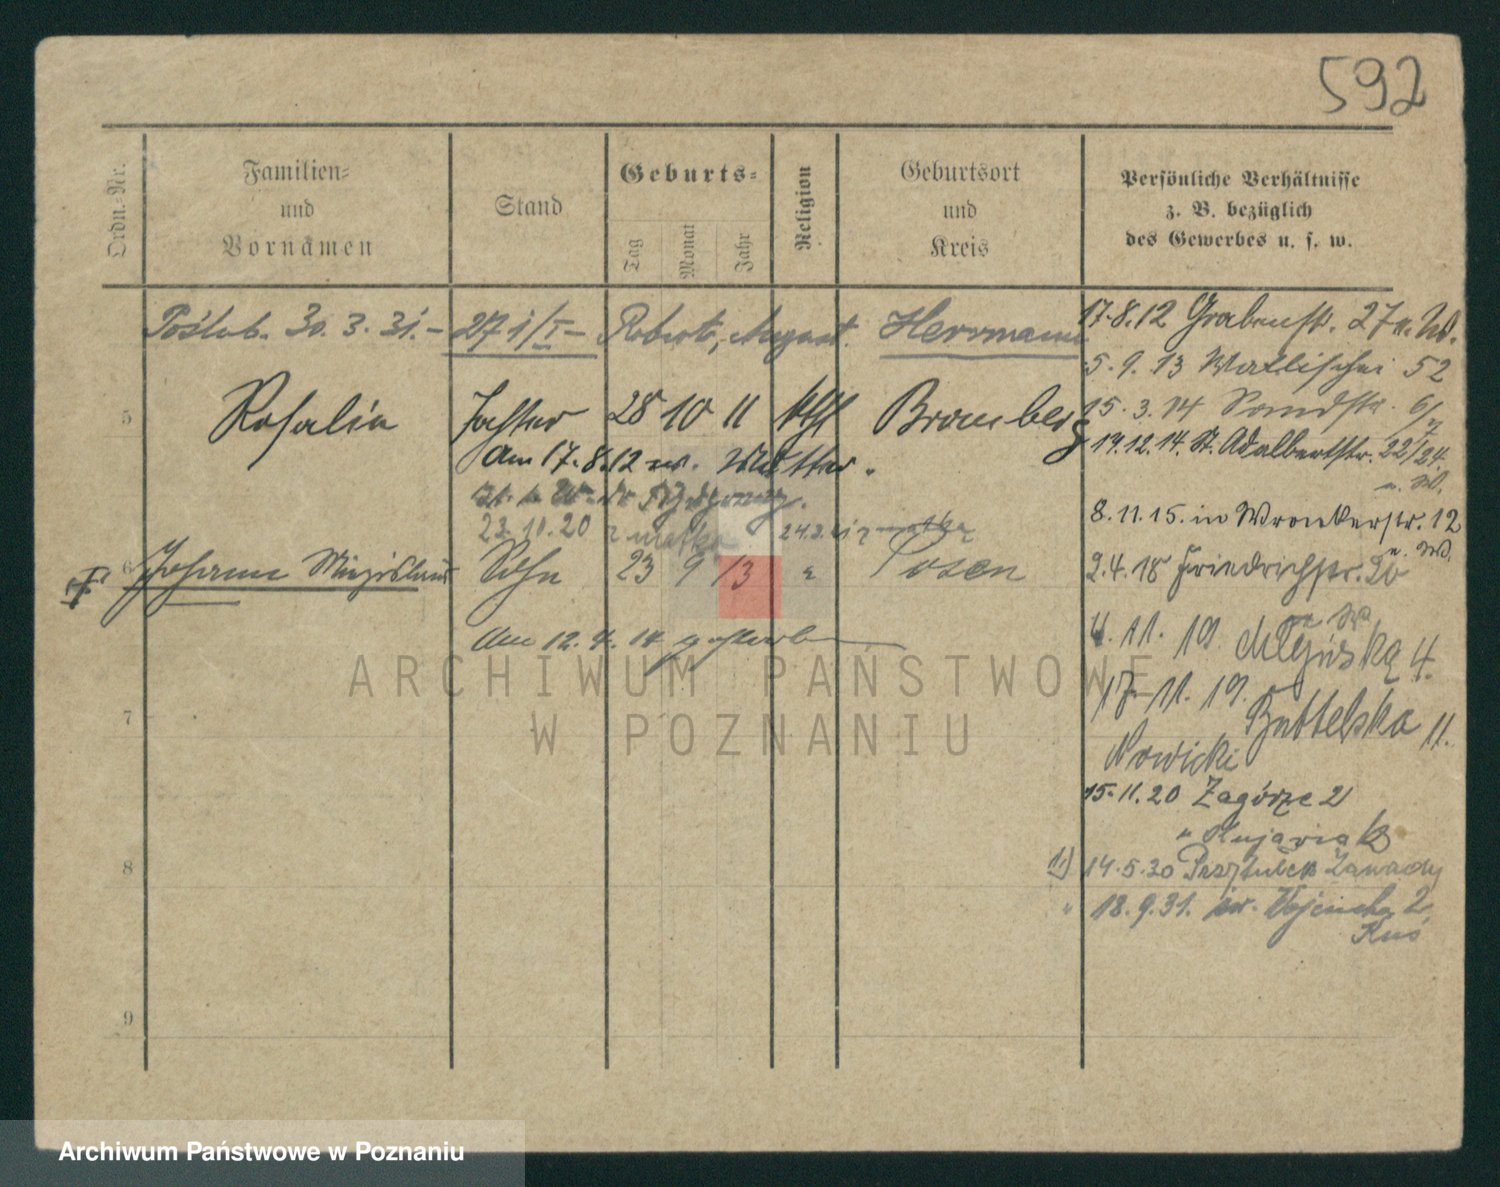 592
Ordn.-Nr.
Familien-
und
Vornamen
Stand
Geburts-
Tag
Monat
Jahr
Religion
Geburtsort
und
Kreis
Persönliche Verhältnisse
z. B. bezüglich
des Gewerbes u. s. w.
Poślub. 30. 3. 31. – 27 i/I – Robert, August Herrmann
5 Rosalia Tochter 28 10 11 kth Bromberg
am 17.8.12 w. Mutter.
23.10.20 z matką 24.3.
6 Johann Miezislaus Sohn 23 9 13 " Posen
Am 12. 4. 14 gestorben
7
8
9
17.8.12 Grabenstr. 27 a. W.
5. 9. 13 Wallischei 52
15. 3. 14 Sandstr. 6/7
19.12.14. St. Adalbertstr. 22/24.
8.11.15. in Wronkerstr. 12
2.4.18 Friedrichstr. 20
4. 11. 19 Młyńska 4.
17. 11. 19. Buttelska 11.
Nowicki
15.11.20 Zagórze 2
" Kujawiak
1.) 14.5.30 Przytułek Zawady
" 18.9.31. św. Wojciecha 2
Kuś
ARCHIWUM PAŃSTWOWE
W POZNANIU
Archiwum Państwowe w Poznaniu